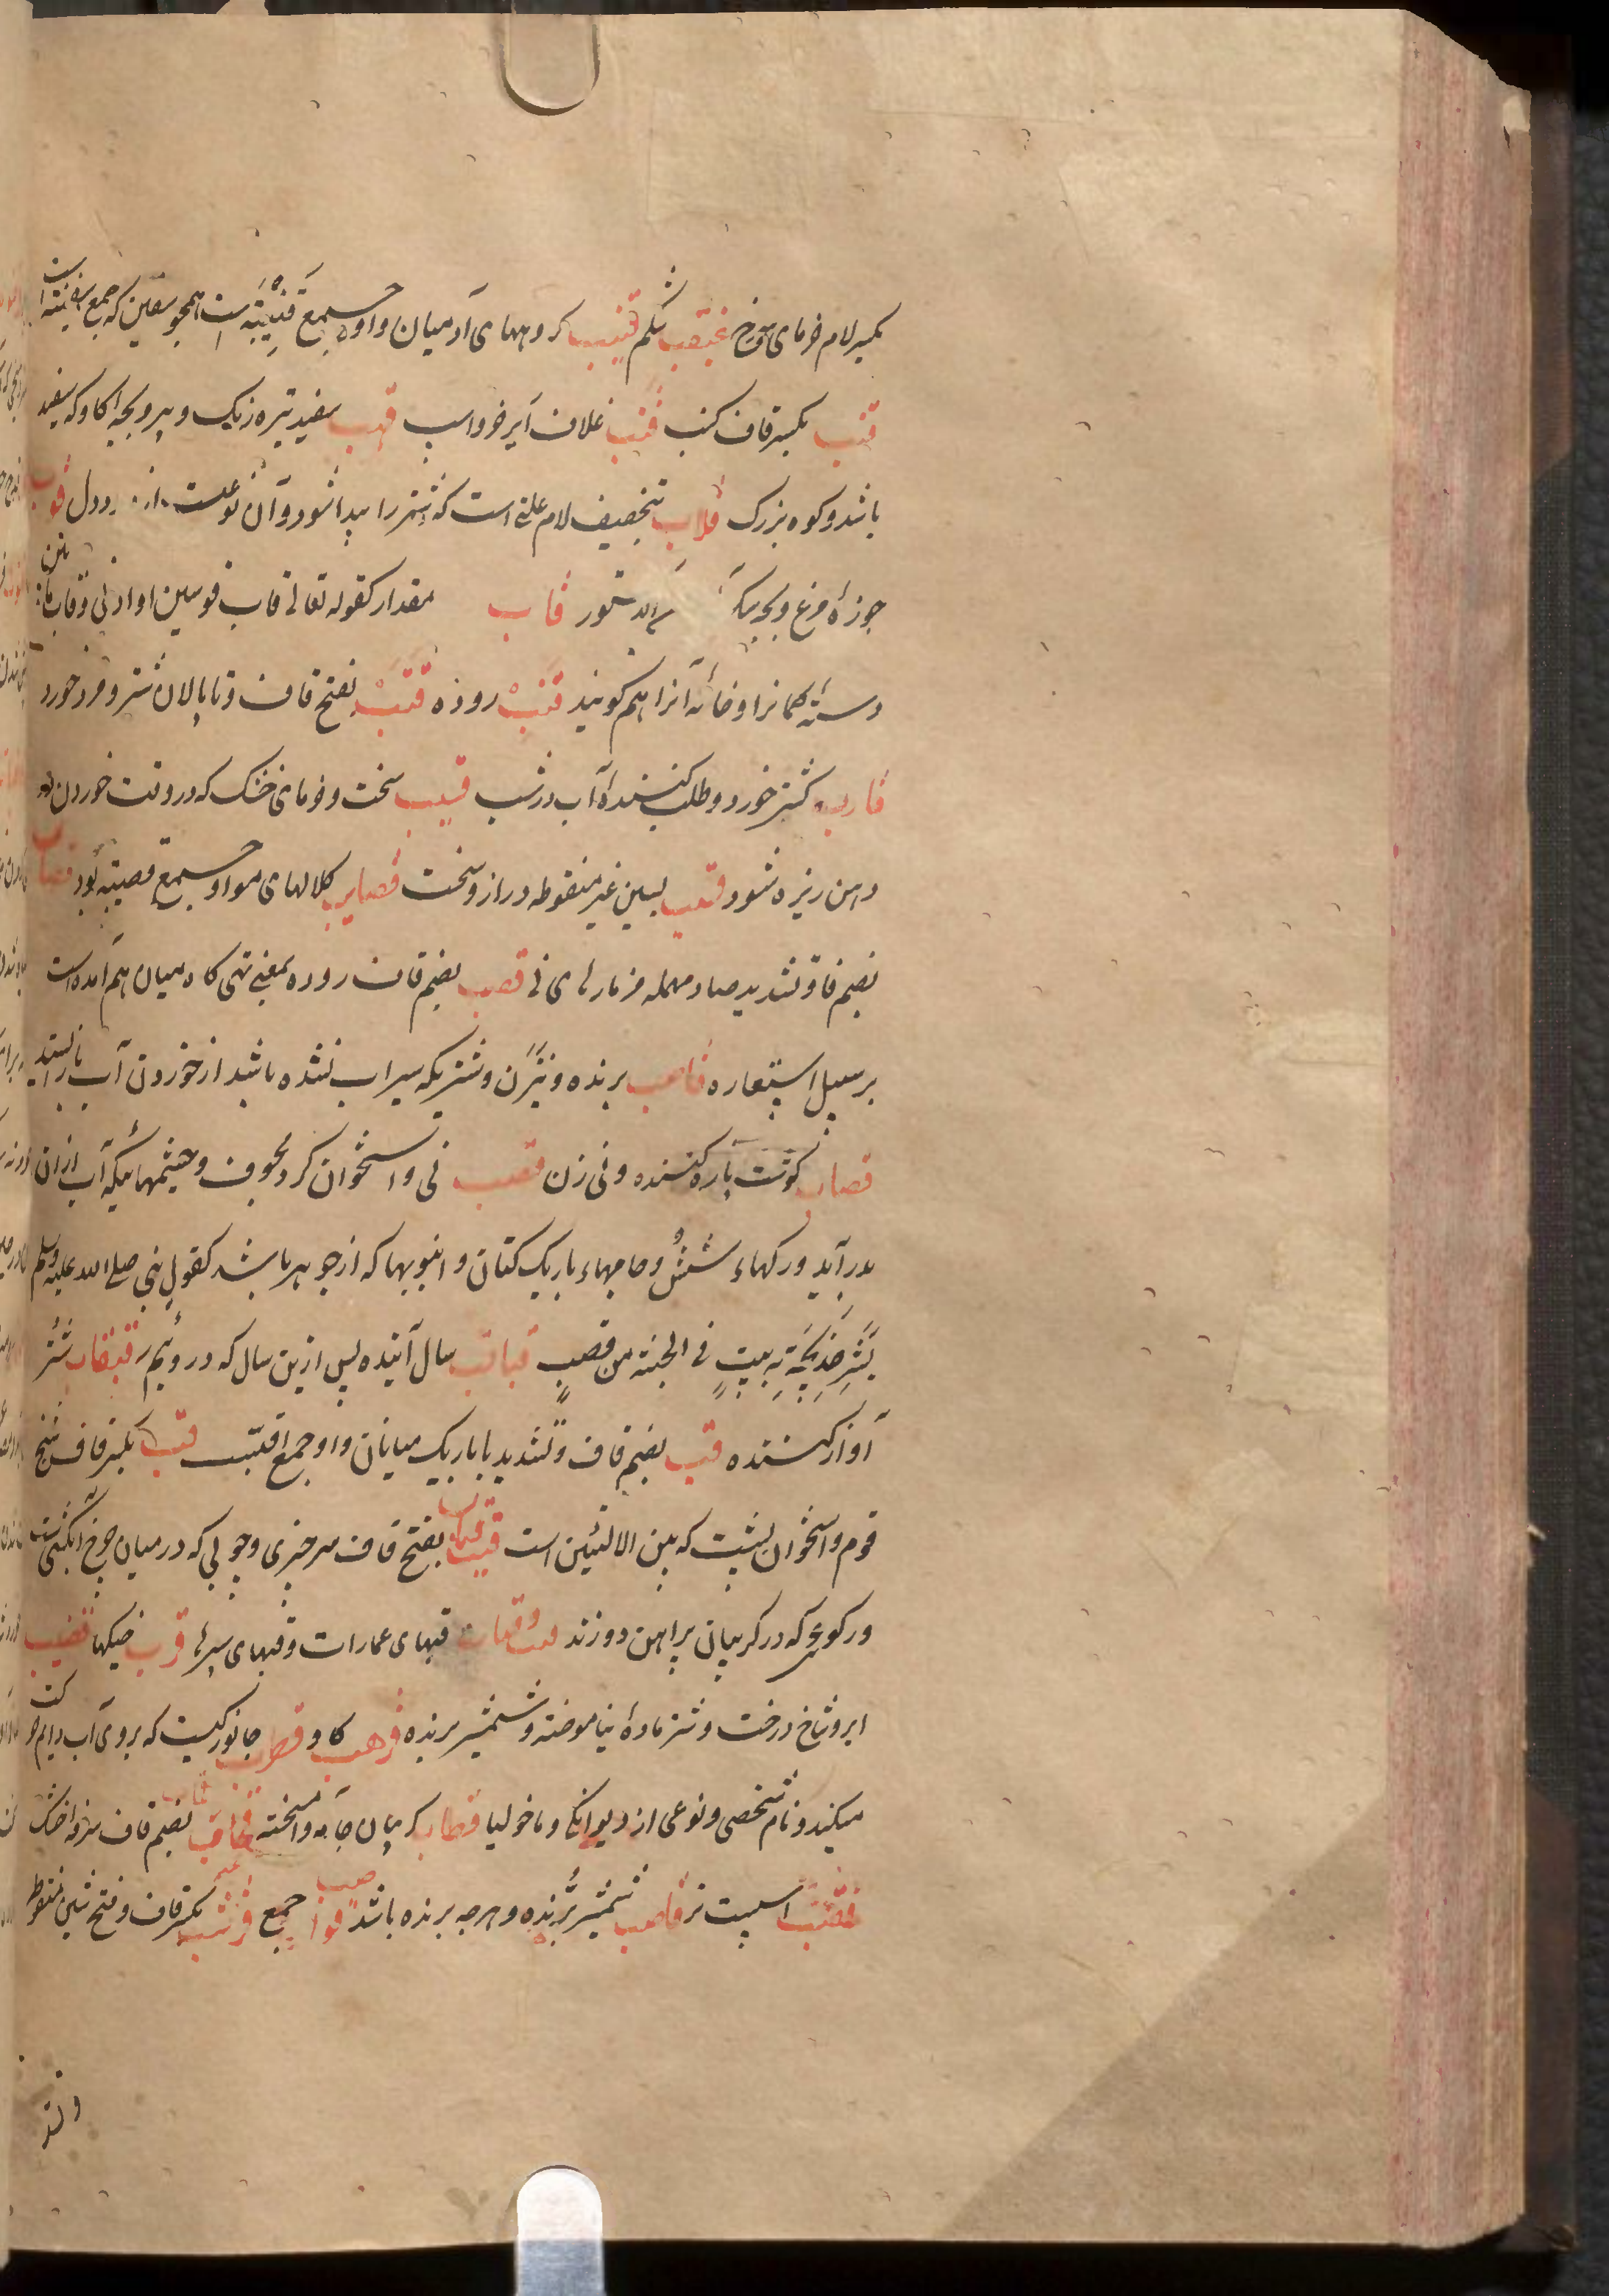 بکسر لام خرمای سرخ غبقب شکم قنیب کروههای آدمیان و او جمع قنیبة است همچو سفین که جمع سفینة است
قنب بکسر قاف کنب قنب غلاف ایر خر و اسپ قهب سفید تیره رنگ و پیر و بچه کاو که سفید
باشد و کوه بزرک قلاب بتخفیف لام علتی است که شتر را پیدا شود و آن نوعیست از درد دل قوب
جوزهٔ مرغ و بچه قاب مقدار کقوله تعالی قاب قوسین او ادنی و قاب میان
دستهٔ کمانرا و خانهٔ آنرا هم کویند قتب روده قتب بفتح قاف و تا پالان شتر و مرد خورد
قارب کشتی خورد و طلب کنندهٔ آب در شب قسیب سخت و خرمای خشک که در وقت خوردن در
دهن ریزه شود قسب بسین غیر منقوطه دراز و سخت قصایب کلالهای مو و او جمع قصیبه بود قصاب
بضم قاف و تشدید صاد مهمله مزمارهای نی قصب بضم قاف روده بمعنی تهی کاه میان هم آمده است
بر سبیل استعاره قاصب برنده و نی زن و شتریکه سیراب نشده باشد از خوردن آب باز ایستد
قصاب کوشت پاره کننده و نی زن قصب نی و استخوان کرد مجوف و چشمهائیکه آب ازان
بدر آید و رکهاء شش و جامهاء باریک کتان و انبوبها که از جوهر باشد کقول نبی صلی الله علیه وسلم
بشر خدیجة ببیت فی الجنة من قصب قباقب سال آینده پس ازین سال که در ویم قبقاب شتر
آواز کننده قب بضم قاف و تشدید با باریک میانان و او جمع اقبست قب بکسر قاف شیخ
قوم و استخوان پشت که بین الالیتین است قب بفتح قاف سر چیزی و چوبی که در میان چرخ انکشی است
و رکوعی که در کریبان پیراهن دوزند قباب قبهای عمارات و قبهای سپر قرب خیکها قضیب
ابر و شاخ درخت و شتر مادهٔ نیاموخته و شمشیر برنده قرهب کاو قطرب جانوریست که بروی آب دایم حرکت
میکند و نام شخصی و نوعی از دیوانکی و ماخولیا قطاب کریبان جامه و آمیخته قحاب بضم قاف سرفهٔ خشک
اسپست تر قاضب شمشیر برنده و هرچه برنده باشد قواضب جمع قرشب بکسر قاف و فتح شین منقوطه